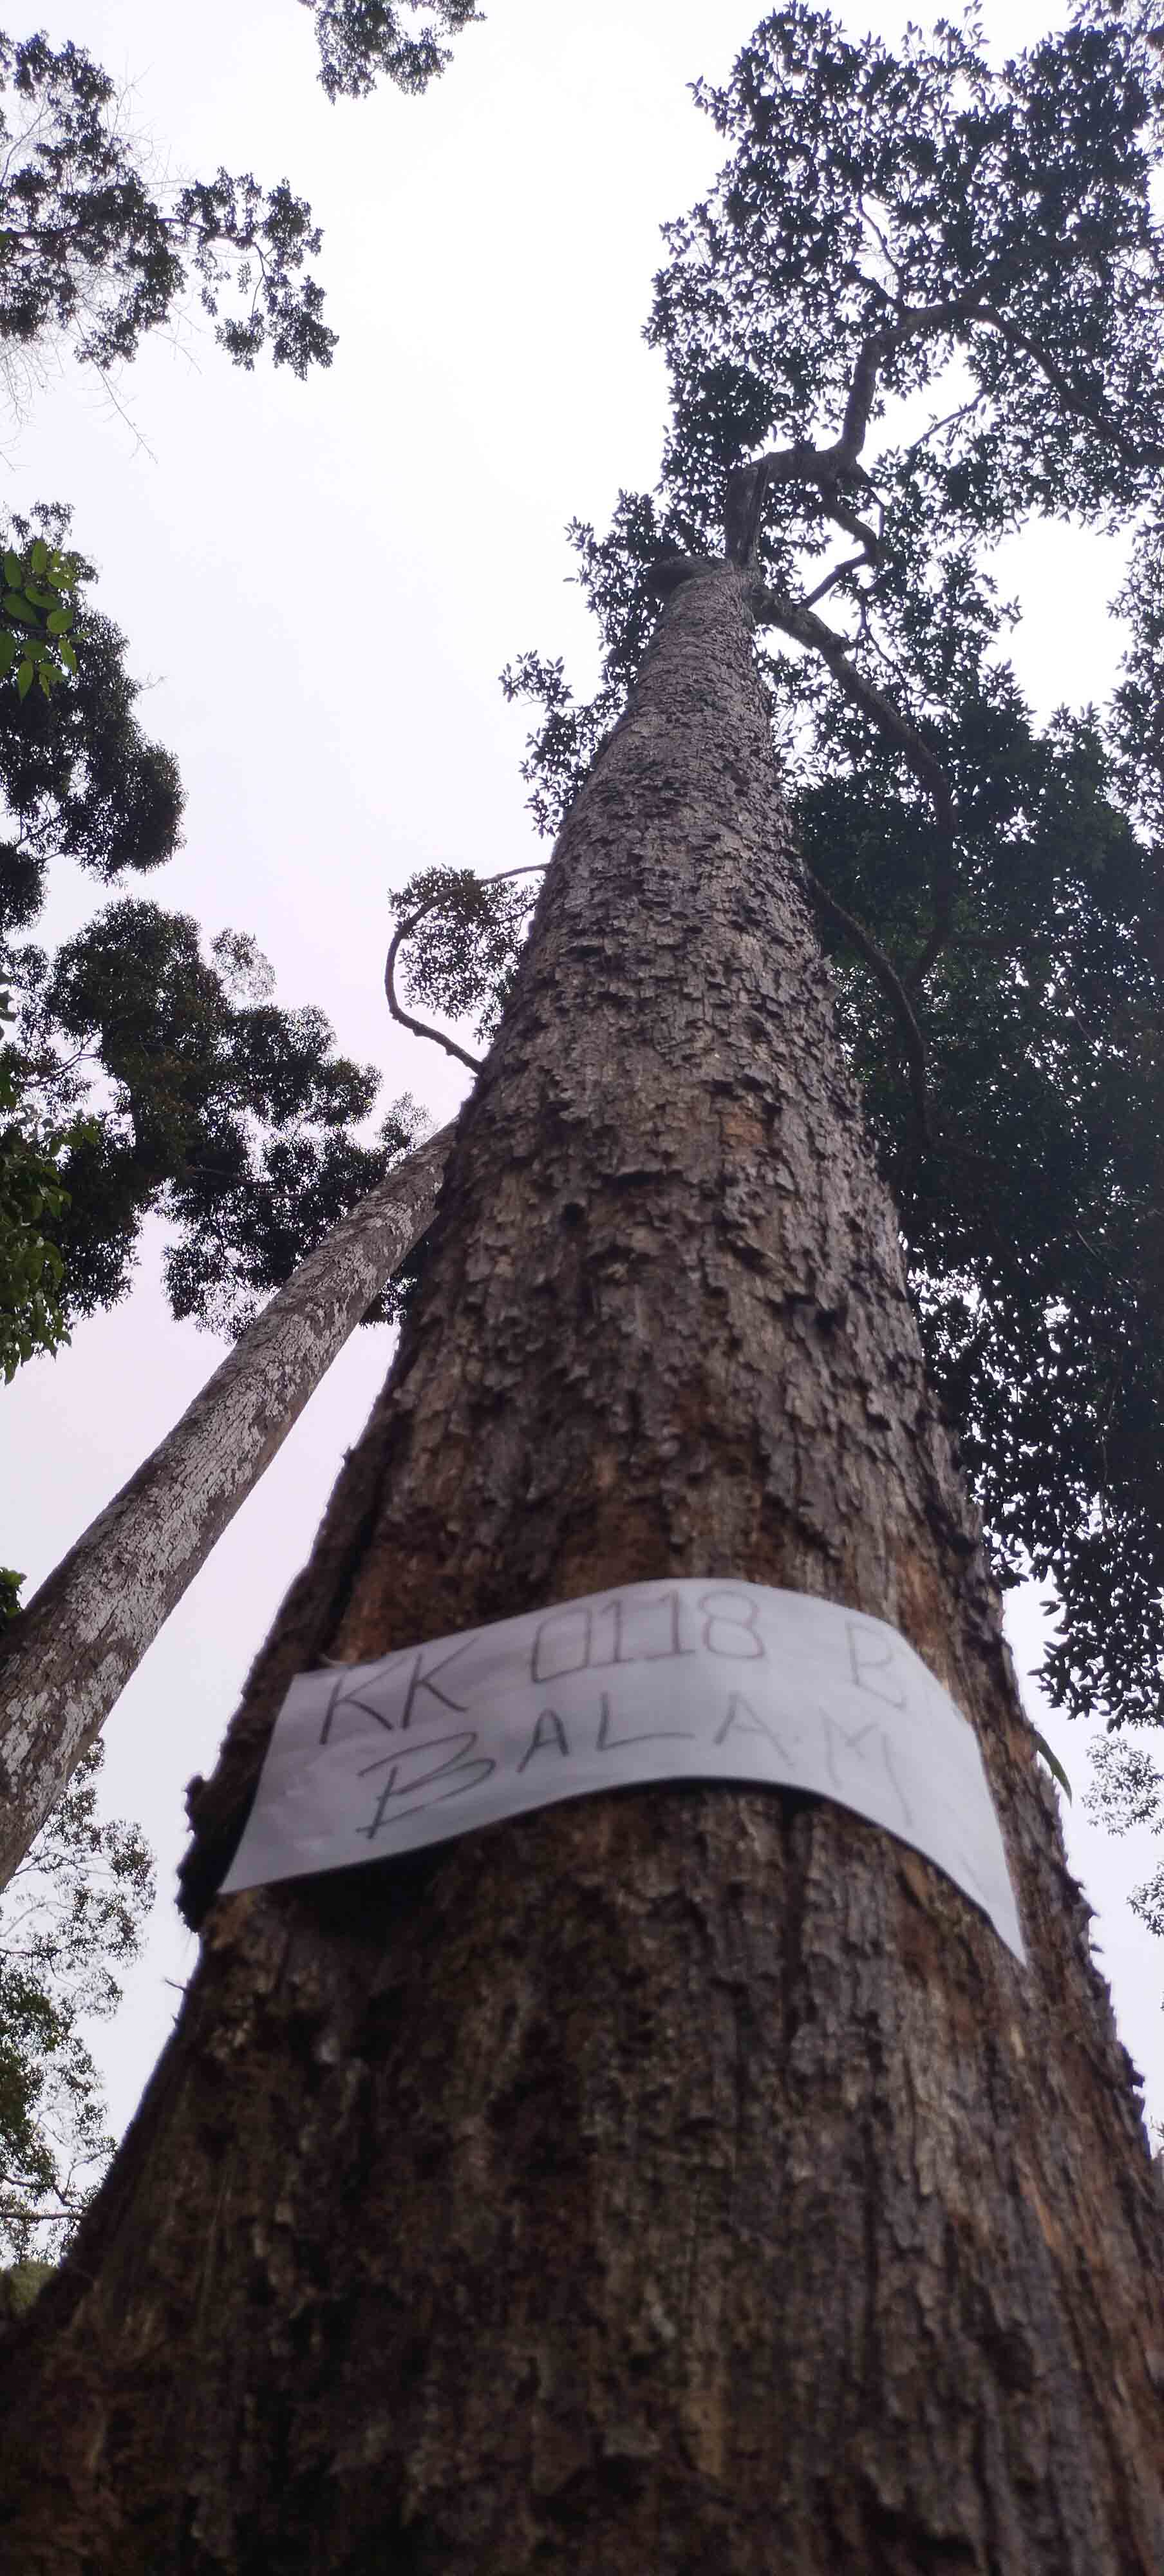 KK 0118 B
BALAM